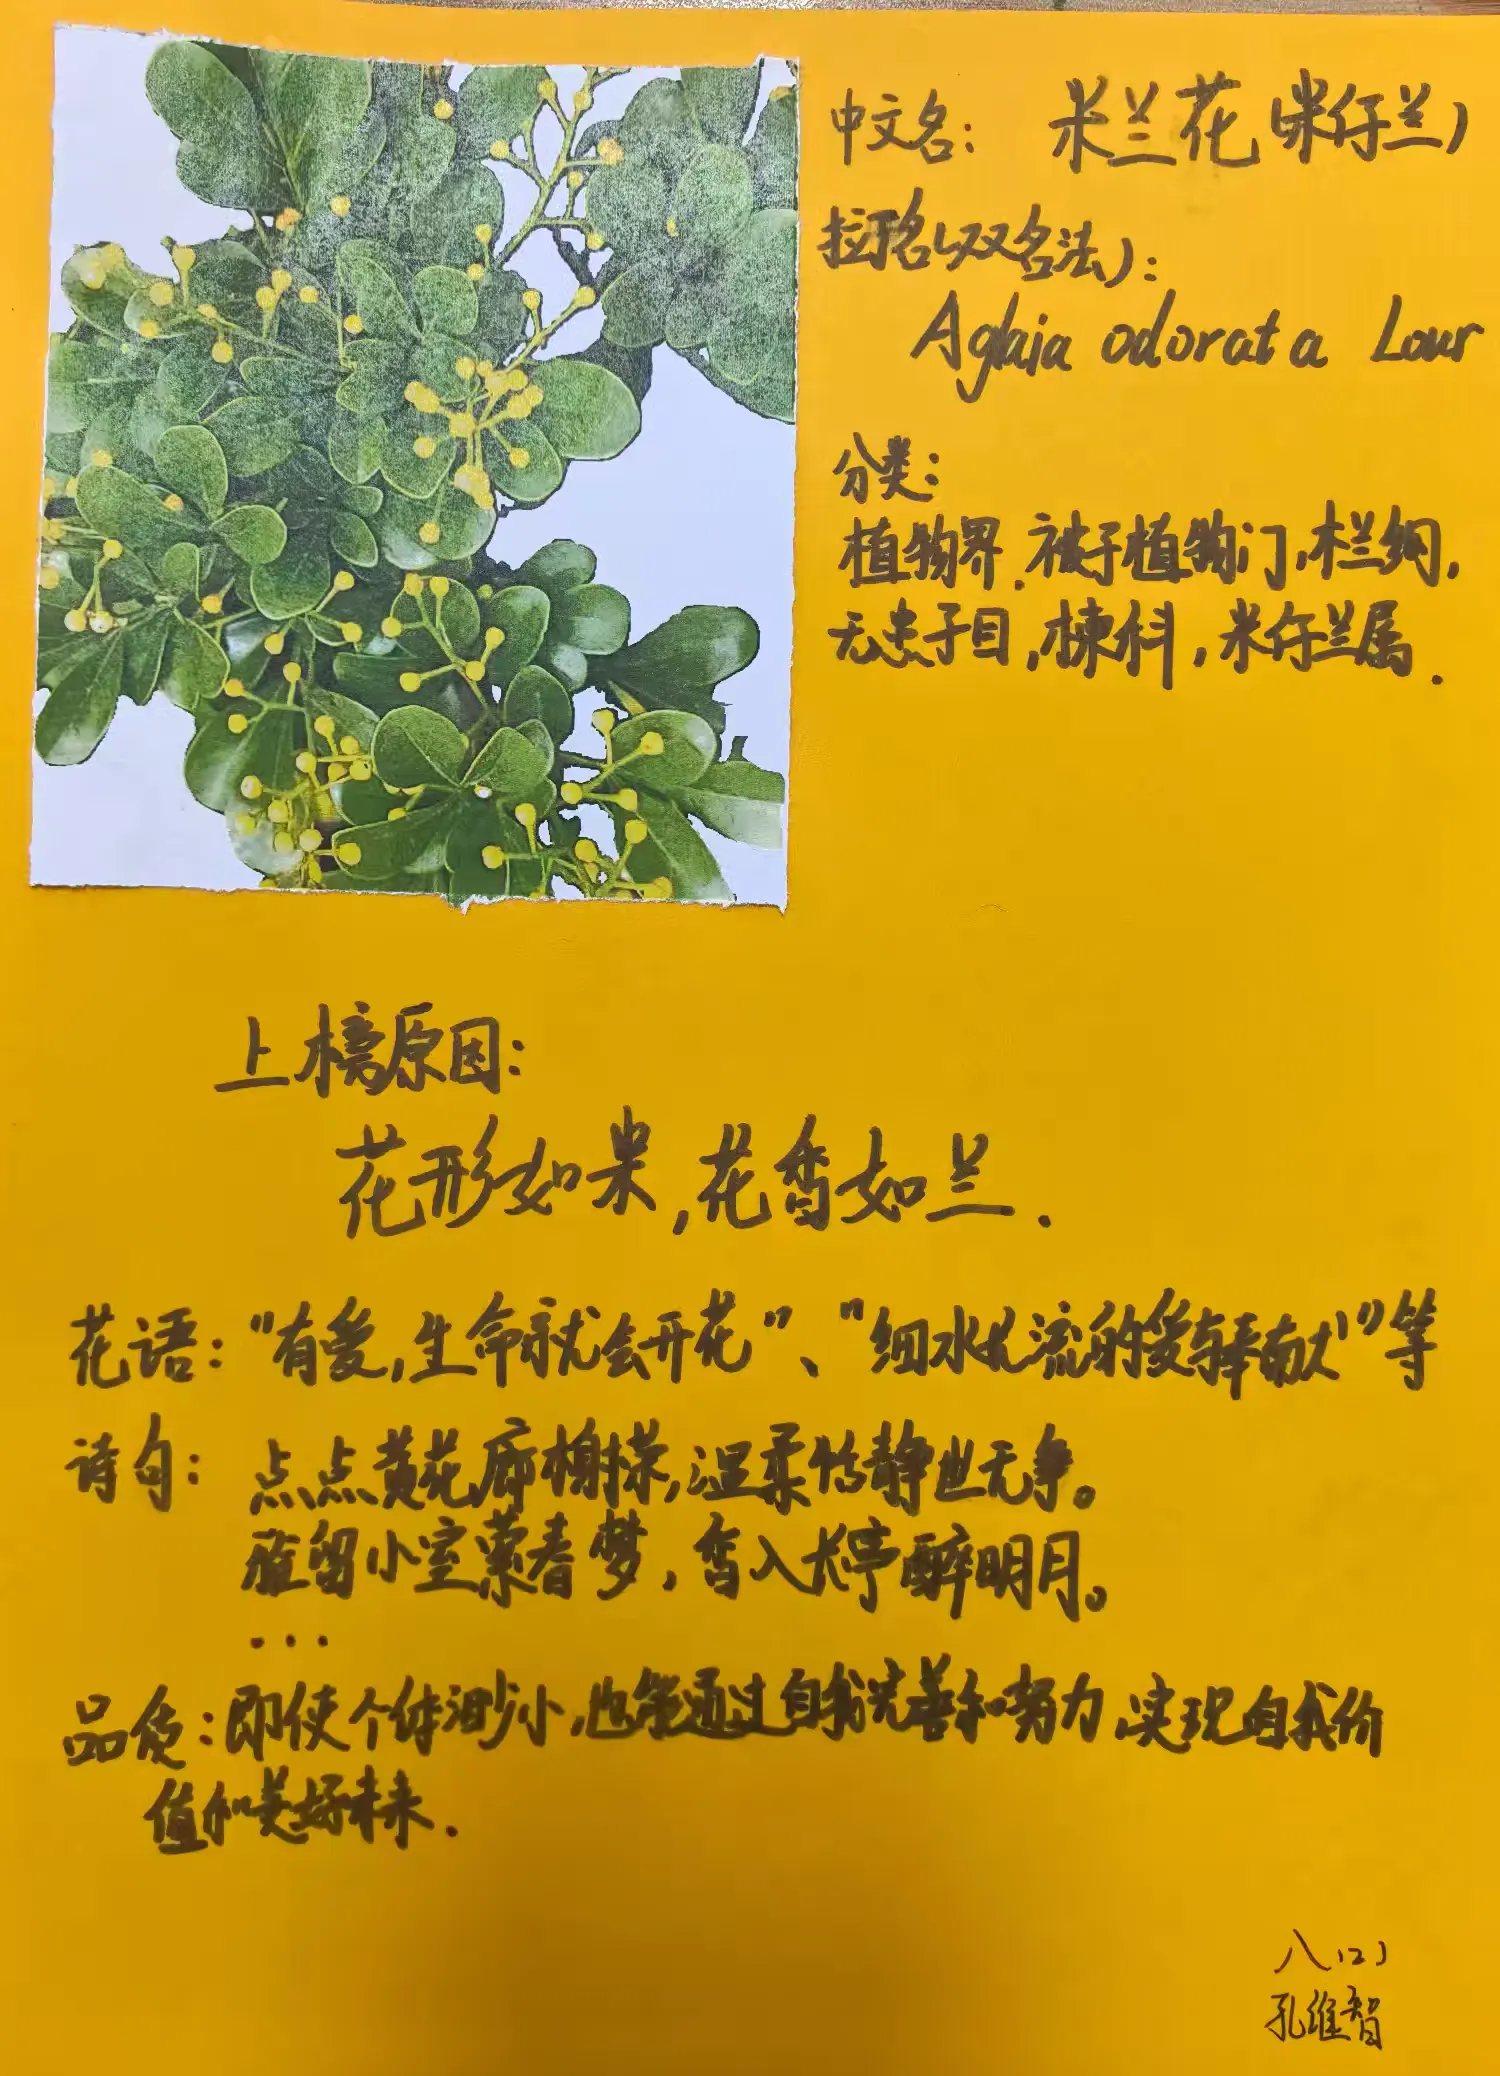 中文名：米兰花（米仔兰）
拉丁名（双名法）：
Aglaia odorata Lour
分类：
植物界．被子植物门，木兰纲，
无患子目，楝科，米仔兰属．
上榜原因：
花形如米，花香如兰．
花语：“有爱，生命就会开花”、“细水长流的爱与奉献”等
诗句：点点黄花廊榭荣，温柔恬静世无争。
留小室萦春梦，香入长亭醉明月。
...
品质：即使个体渺小，也能通过自我完善和努力，实现自我价
值和美好未来．
八（2）
孔维智